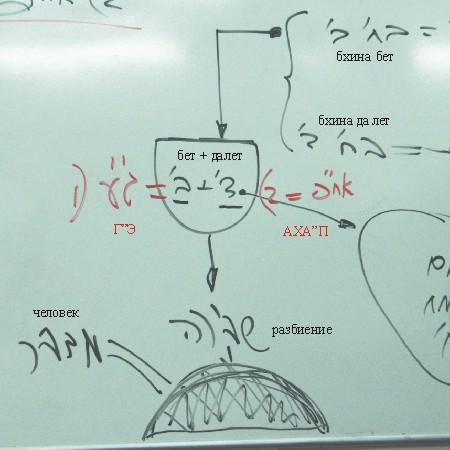 בח' ב' =
бхина бет
бхина далет
בח' ד' =
бет + далет
(1 ג"ע =
ב' + ד'
(2 = אח"פ
Г"Э
АХА"П
человек
שבירה
разбиение
מדבר